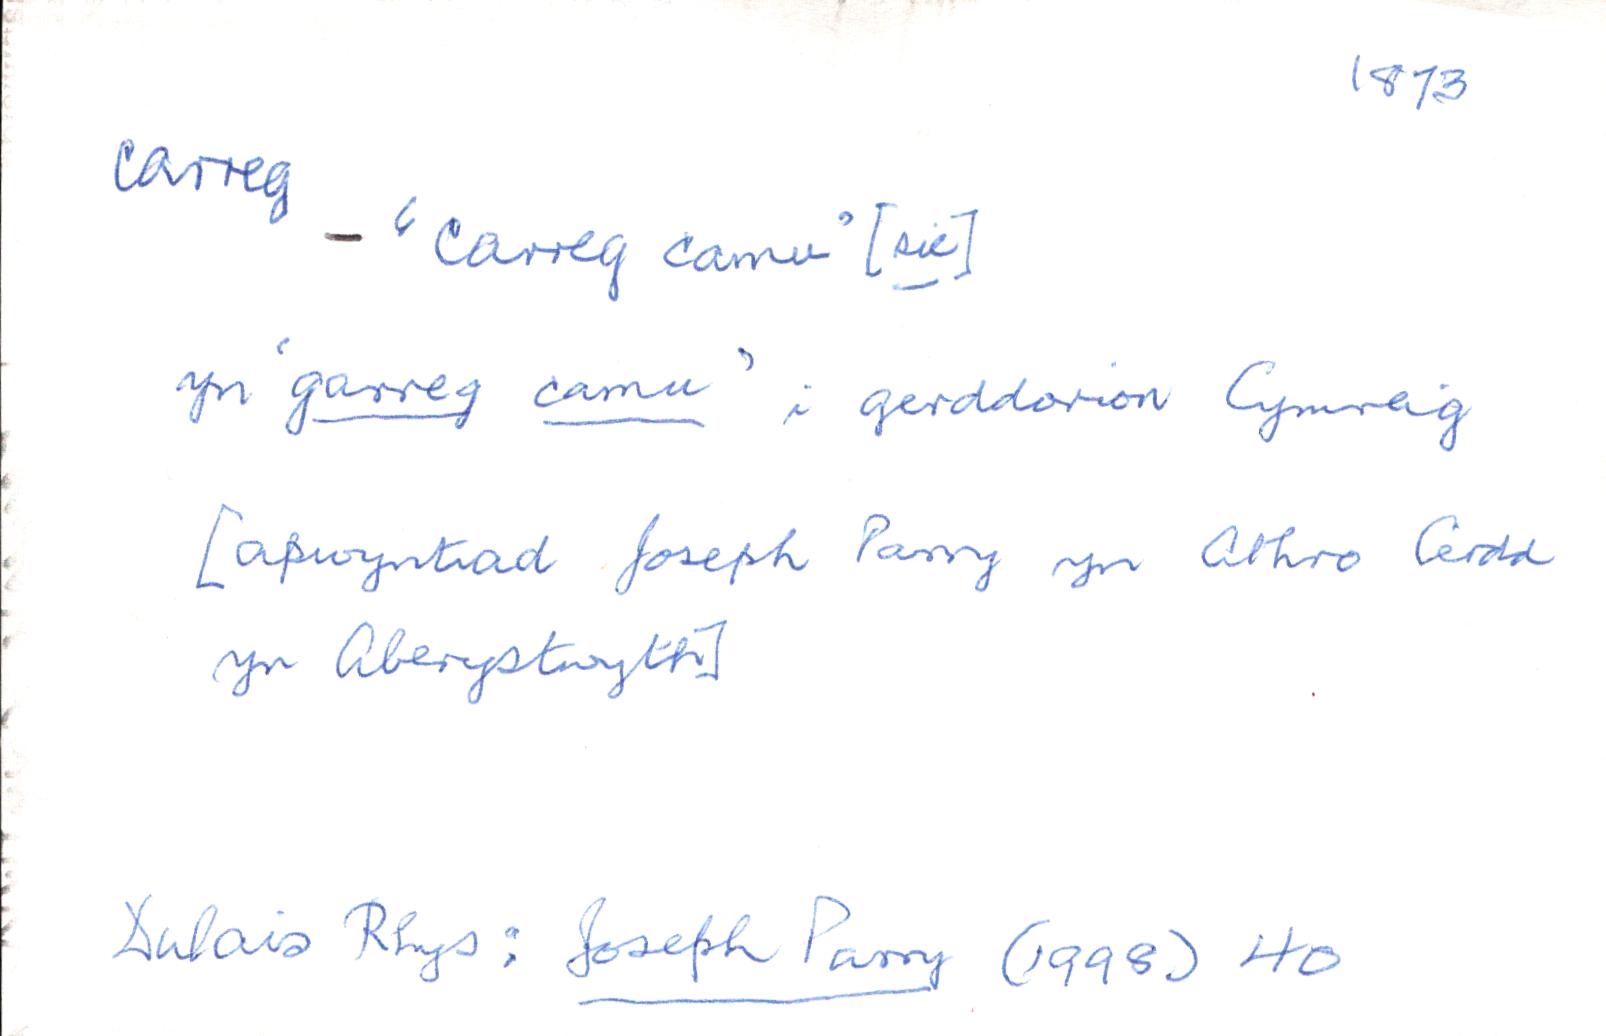 1873
carreg
– ‘Carreg camu’ [sic]
yn ‘garreg camu’ i gerddorion Cymreig
[apwyntiad Joseph Parry yn Athro Cerdd
yn Aberystwyth]
Dulais Rhys: Joseph Parry (1998) 40